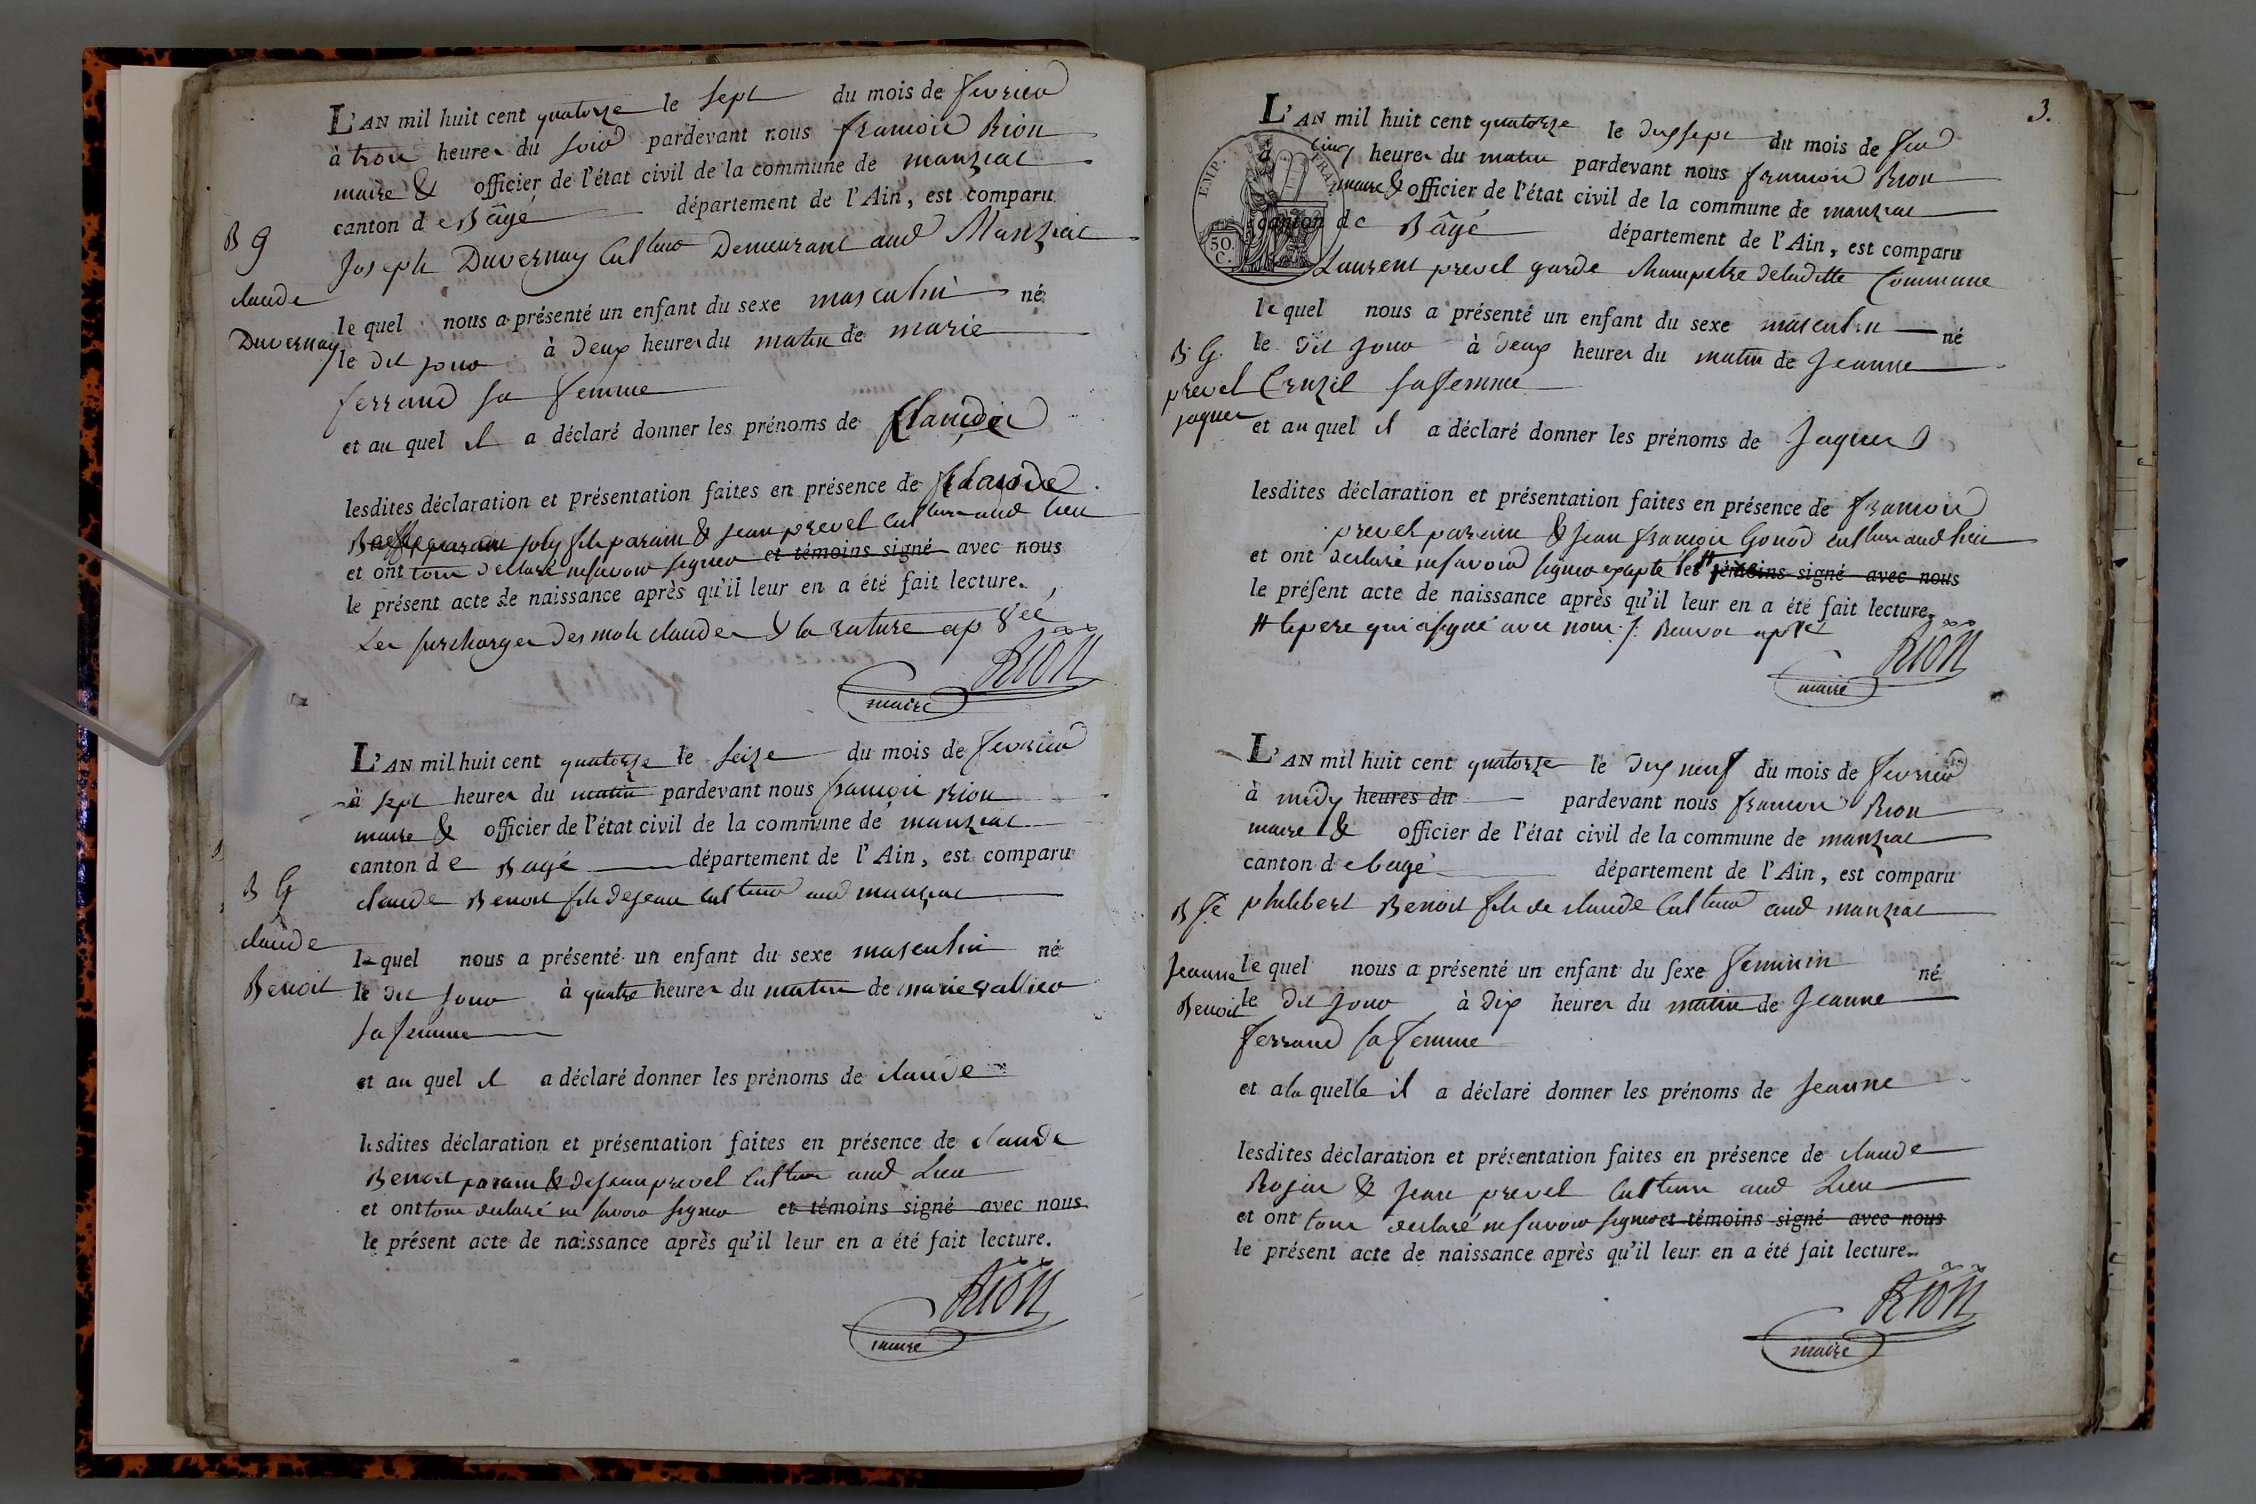 L'AN mil huit cent quatorze le sept du mois de fevrier
à trois heures du soir pardevant nous françois Rion
maire & officier de l'état civil de la commune de manziat
canton de Bâgé département de l'Ain, est comparu
B g
claude
Duvernay
Joseph Duvernay Cultivr Demeurant aud Manziat
le quel nous a présenté un enfant du sexe masculin né
le dit jour à deux heures du matin de marie
ferrand sa femme
et au quel il a déclaré donner les prénoms de Claude
lesdites déclaration et présentation faites en présence de Claude
joly fils parain & jean prevel cultivrs aud lieu
et ont tous declaré ne savoir signer et témoins signé avec nous
le présent acte de naissance après qu'il leur en a été fait lecture.
Les surcharges des mots claudes & la rature
Rion
maire
L'AN mil huit cent quatorze le seize du mois de fevrier
à sept heures du matin pardevant nous françois Rion
maire & officier de l'état civil de la commune de manziat
canton de Bagé département de l'Ain, est comparu
B G
claude
Benoit
claude Benoit fils de jean cultivr aud manziat
le quel nous a présenté un enfant du sexe masculin né
le dit jour à quatre heures du matin de marie
sa femme
et au quel il a déclaré donner les prénoms de claude
lesdites déclaration et présentation faites en présence de claude
Benoit parain & de jean prevel cultivrs aud Lieu
et ont tous declaré ne savoir signer et témoins signé avec nous
le présent acte de naissance après qu'il leur en a été fait lecture.
Rion
maire
3.
L'AN mil huit cent quatorze le dix sept du mois de fer
à cinq heures du matin pardevant nous françois Rion
maire & officier de l'état civil de la commune de manziat
canton de Bâgé département de l'Ain, est comparu
EMP. FRAN
50.
C.
Laurent prevel garde Champetre de laditte Commune
le quel nous a présenté un enfant du sexe masculin né
B. G.
prevel
jaques
le dit jour à deux heures du matin de Jeanne
Cruzil sa femme
et au quel il a déclaré donner les prénoms de Jaques
lesdites déclaration et présentation faites en présence de françois
prevel parain & jean françois Gonod cultivrs aud lieu
et ont declaré ne savoir signer exepté les témoins signé avec nous
le présent acte de naissance après qu'il leur en a été fait lecture.
# le pere qui a signé avec nous ./. Renvoi
Rion
maire
L'AN mil huit cent quatorze le dix neuf du mois de fevrier
à midy heures du pardevant nous françois Rion
maire & officier de l'état civil de la commune de manziat
canton de bagé département de l'Ain, est comparu
B fe
Jeanne
Benoit
philibert Benoit fils de claude Cultivr aud manziat
le quel nous a présenté un enfant du sexe feminin né
le dit jour à dix heures du matin de Jeanne
ferrand sa femme
et a la quelle il a déclaré donner les prénoms de Jeanne
lesdites déclaration et présentation faites en présence de claude
& jean prevel Cultivrs aud Lieu
et ont tous declaré ne savoir signer et témoins signé avec nous
le présent acte de naissance après qu'il leur en a été fait lecture.
Rion
maire